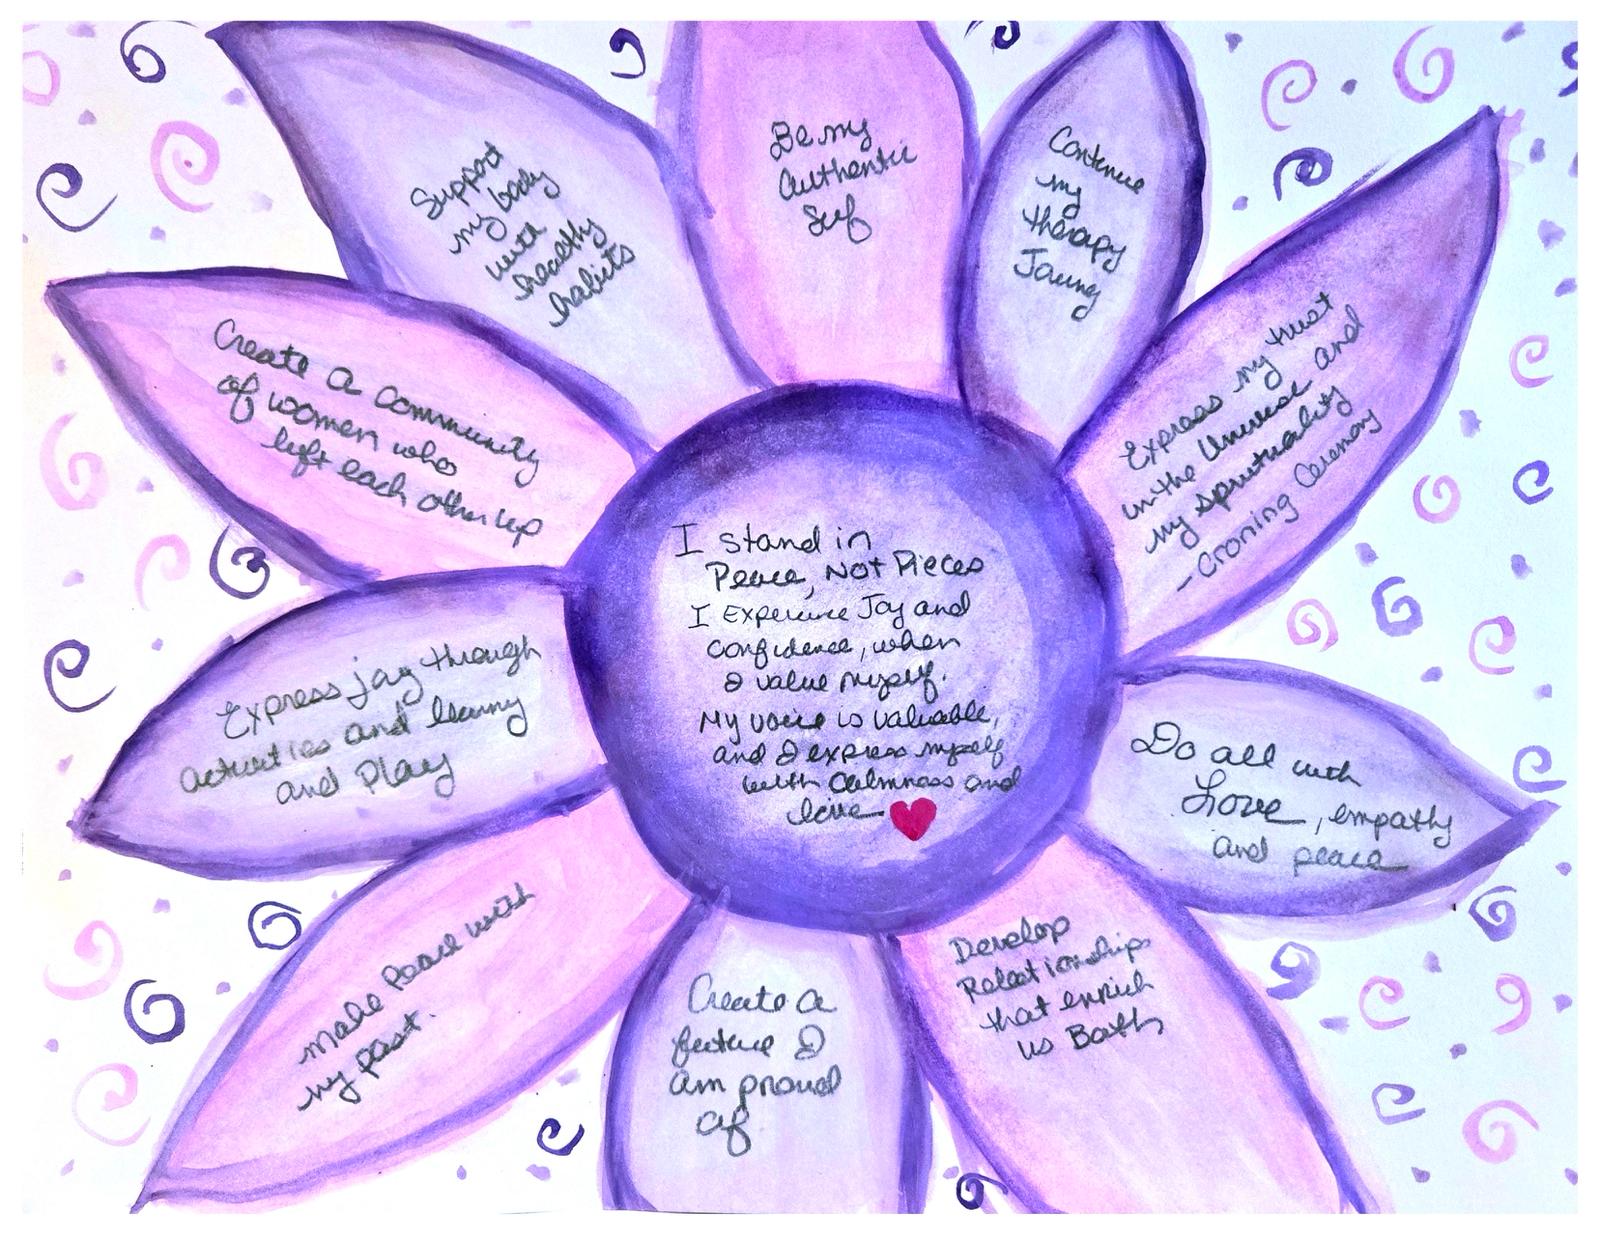 Be my
Authentic
Self
Continue
my
therapy
Express my trust
in the Universe and
my spirituality
- Croning Ceremony
Do all with
Love, empathy
and peace
Develop
Relationships
that enrich
us Both
Create a
future I
am proud
of
Make Peace with
my past.
Express joy through
activities and
and Play
Create a community
of women who
lift each other up
Support
my body
with
healthy
habits
I stand in
Peace, Not Pieces
I Experience Joy and
confidence, when
I value myself.
My voice is valuable,
and I express myself
with calmness and
love